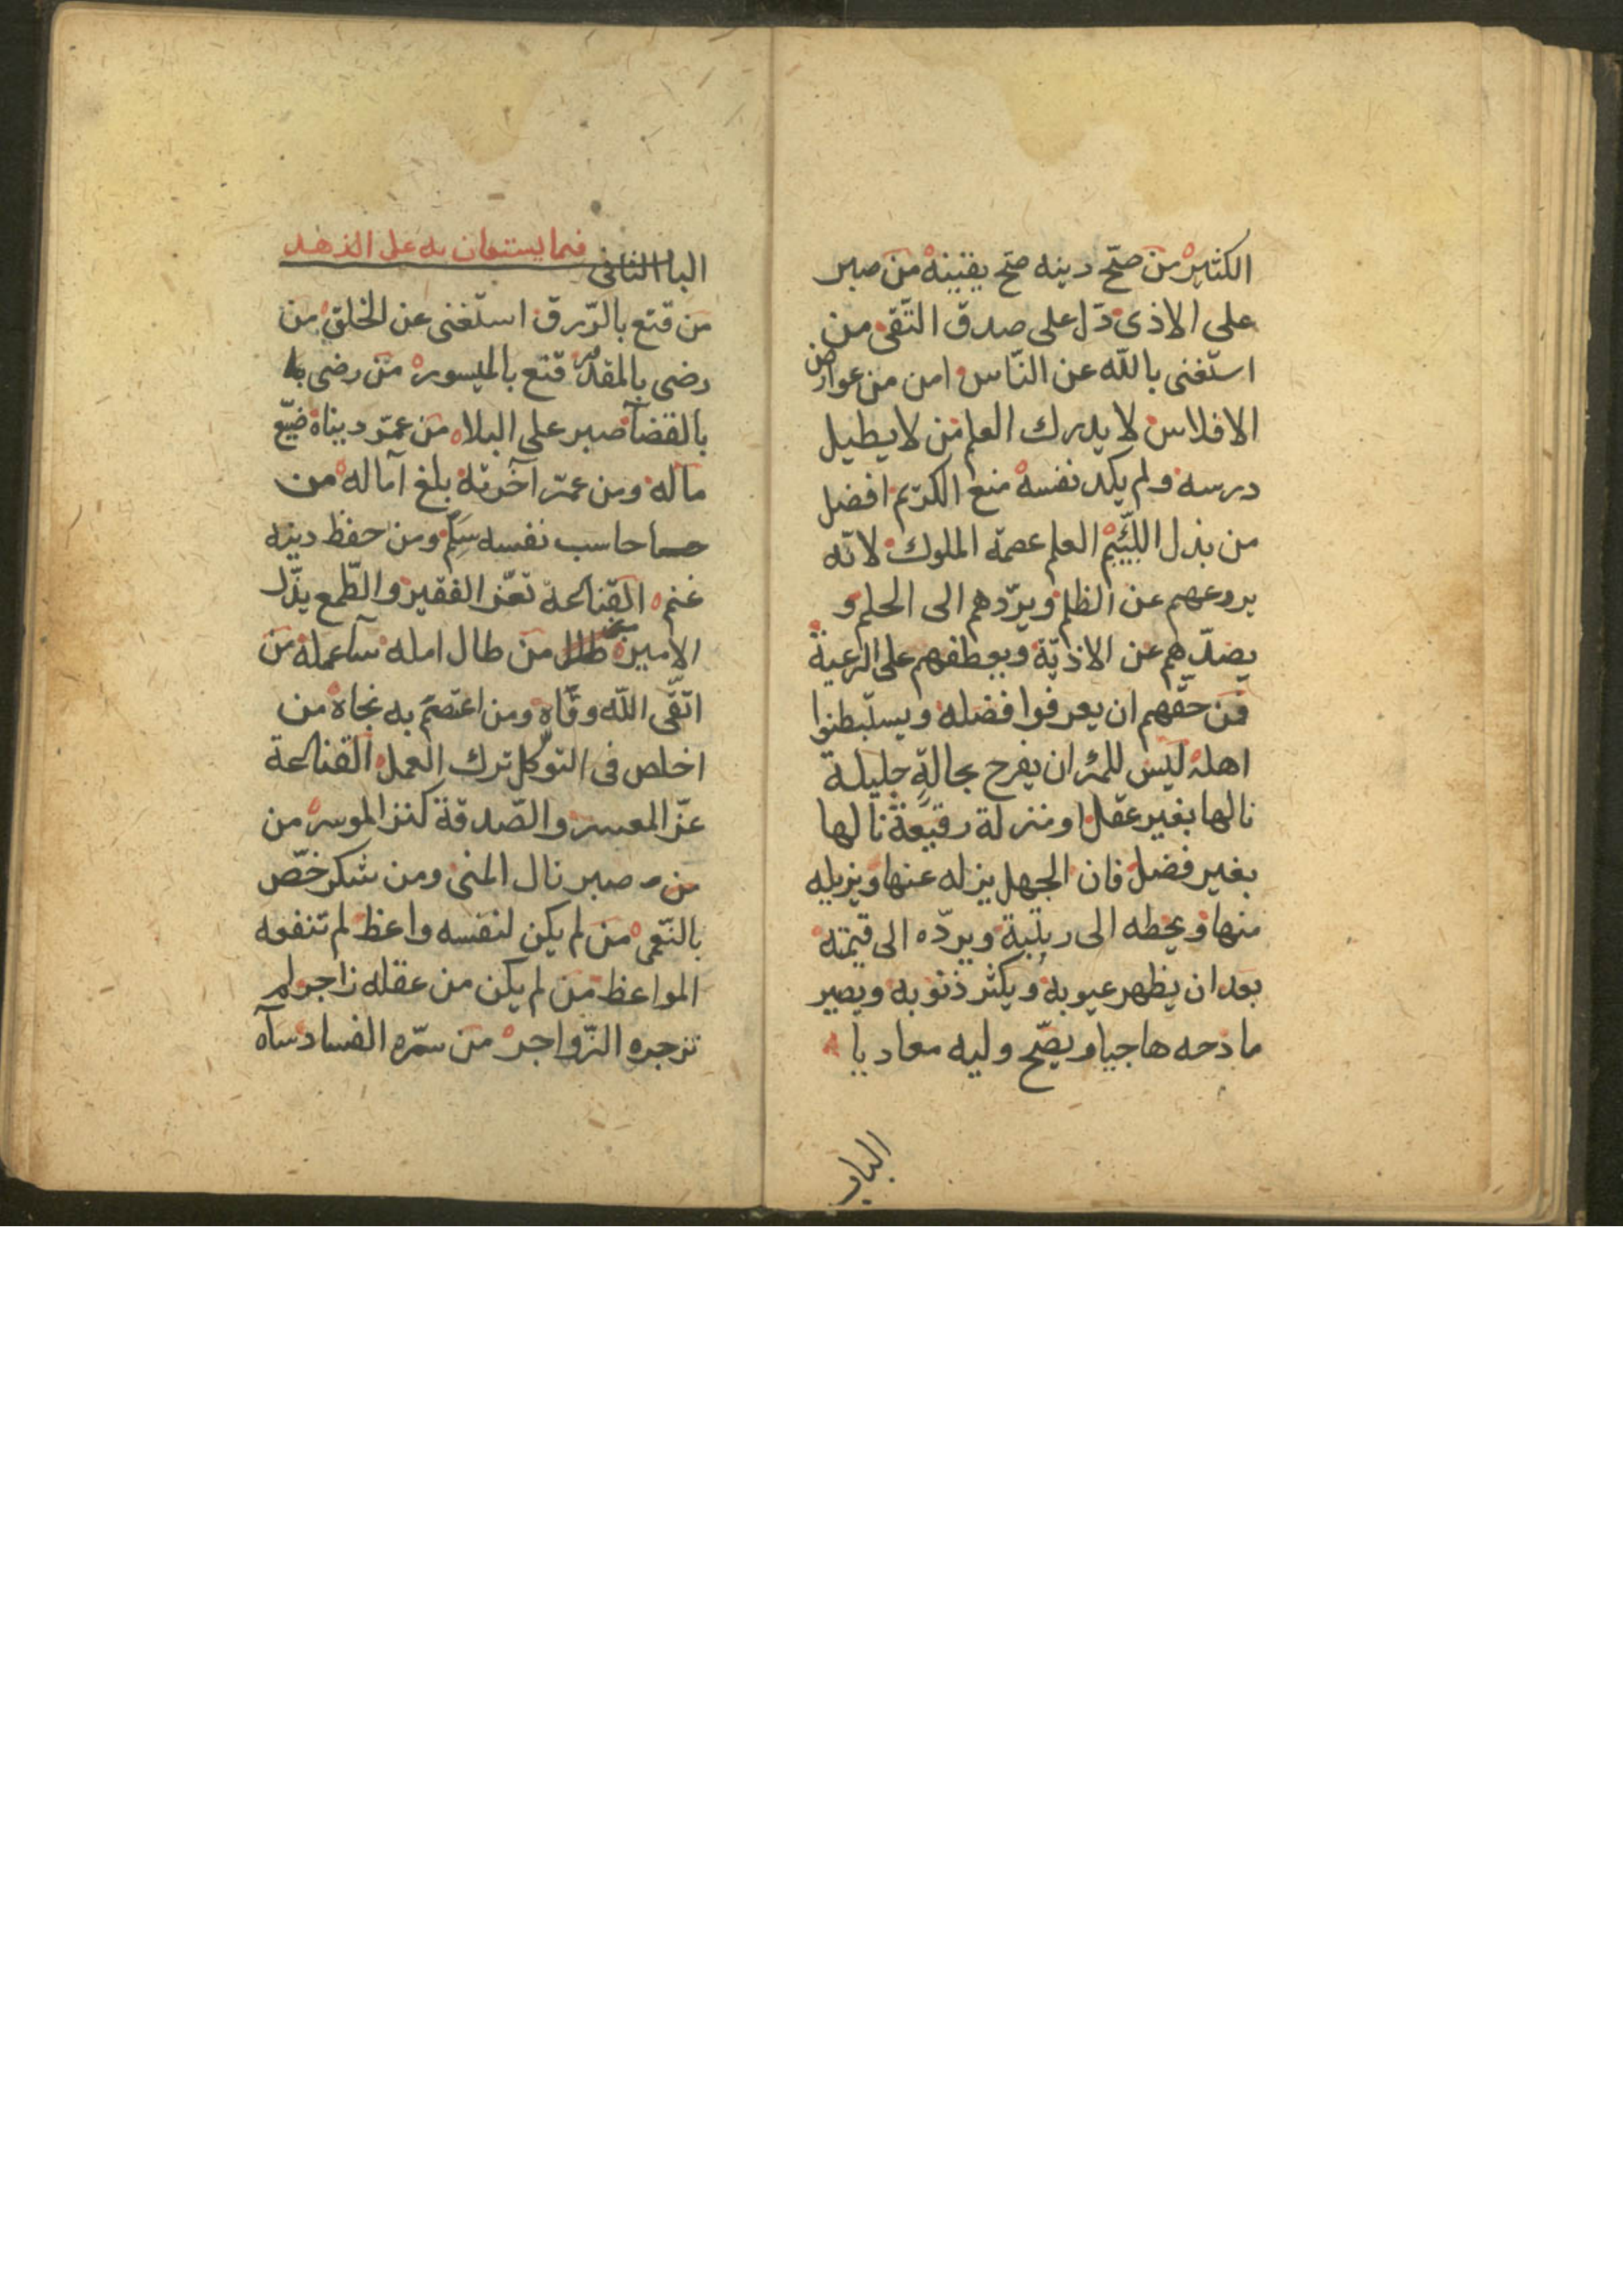 الكثير من صحّ دينه صحّ يقينه من صبر
على الاذى دلّ على صدق التّقى من
استغنى بالله عن النّاس امن من عوارض
الافلاس لا يدرك العلم من لا يطيل
درسه ولم يكد نفسه منع الكريم افضل
من بذل اللّئيم العلم عصمة الملوك لانّه
يردعهم عن الظلم ويردّهم الى الحلم و
يصدّهم عن الاذيّة ويعطفهم على الرعية
فمن حقّهم ان يعرفوا فضله ويستبطنوا
اهله ليس للمرء ان يفرح بحالةٍ جليلة
نالها بغير عقل او منزلة رفيعة نالها
بغير فضل فان الجهل ينزله عنها ويزيله
منها ويحطه الى رتبة ويردّه الى قيمته
بعد ان يظهر عيوبه ويكثر ذنوبه ويصير
مادحه هاجيا ويصحّ وليه معاديا
الباب
الباب الثانى فيما يستعان به على الزهد
من قنع بالرّزق استغنى عن الخلق من
رضى بالمقدور قنع بالميسور من رضى
بالقضآ صبر على البلاء من عمّر دنياه ضيّع
ماله ومن عمّر آخرته بلغ آماله من
حاسب نفسه سَلِم ومن حفظ دينه
غنم القناعة تعزّ الفقير والطّمع يذّل
الامير من طال امله سآء عمله من
اتّقى الله وقّاه ومن اعتصم به نجاه من
اخلص فى التوكّل ترك العمل القناعة
عزّ المعسر والصّدقة كنز الموسر من
من صبر نال المنى ومن شكر خصّ
بالنّعمى من لم يكن لنفسه واعظ لم تنفعه
المواعظ من لم يكن من عقله زاجر لم
تزجره الزّواجر من سرّه الفساد سآه